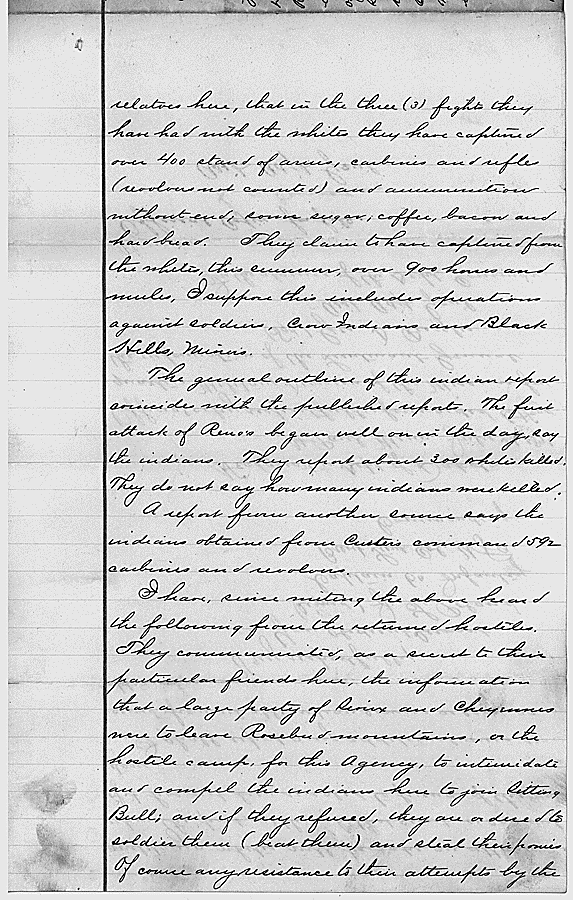 relatives here, that in the three (3) fights they
have had with the whites they have captured
over 400 stand of arms, carbines and rifles
(revolvers not counted) and ammunition
without end; some sugar, coffee, bacon and
hard bread. They claim to have captured from
the whites, this summer, over 900 horses and
mules, I suppose this includes operations
against soldiers, Crow Indians and Black
Hills, Miners.
The general outline of this indian report
coincides with the published reports. The first
attack of Reno's began well on in the day, say
the indians. They report about 300 whites killed.
They do not say how many indians were killed.
A report from another source says the
indians obtained from Custer's command 592
carbines and revolvers.
I have, since writing the above heard
the following from the returned hostiles.
They communicated, as a secret to their
particular friends here, the information
that a large party of Sioux and Cheyennes
were to leave Rosebud mountains, or the
hostile camp, for this Agency, to intimidate
and compel the indians here to join Sitting
Bull; and if they refused, they are ordered to
soldier them (beat them) and steal their ponies
Of course any resistance to their attempts by the